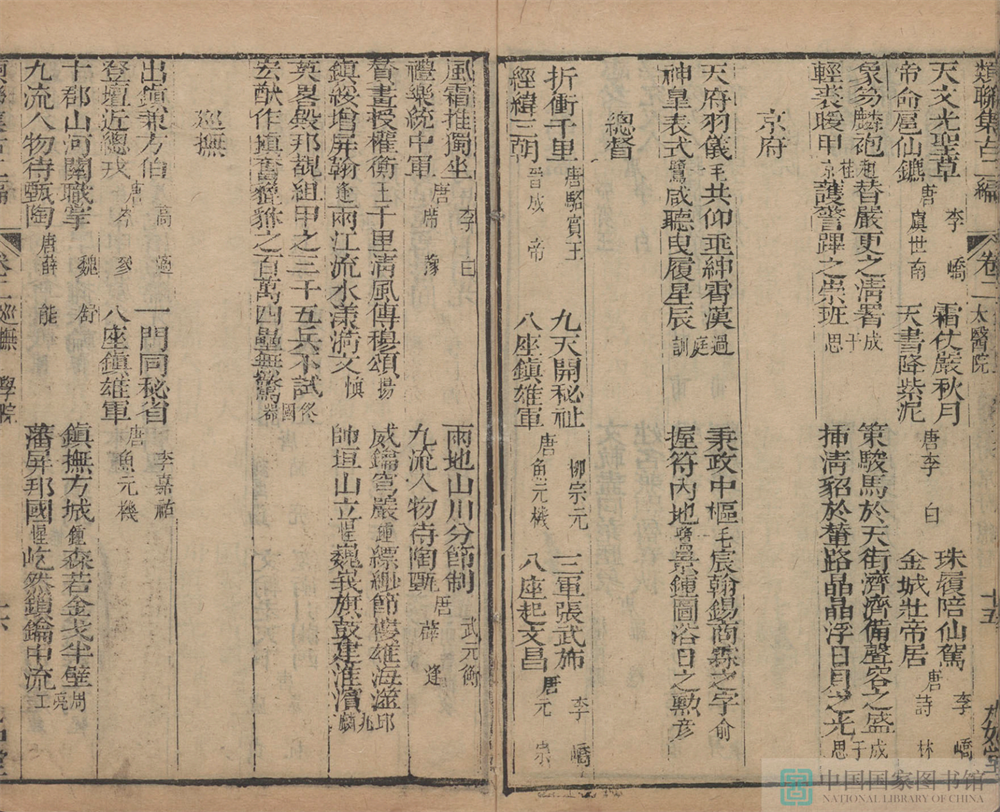 類聯集古二編 卷二 太醫院 十五
天文光聖草 唐李嶠 霜仗嚴秋月 珠履陪仙駕 唐李嶠
帝命屋仙鑣 虞世南 天書降紫泥 唐李白 金城壯帝居 詩林
象笏麟袍 趙桂 替嚴更之清署 成于思 策駿馬於天街濟濟備聲容之盛 成于思
輕裘暖甲 京 護警蹕之崇班 插清貂於輦路晶晶浮日月之光
京府
天府羽儀 毛 共仰垂紳霄漢 過庭訓 秉政中樞 毛 宸翰錫商霖之字 俞彥
神皇表式 鷺 咸聽曳履星辰 握符內地 鷺 景鍾圖浴日之勲
總督
折衝千里 唐駱賓王 九天開秘祉 柳宗元 三軍張武斾 李嶠
經緯三朝 晉成帝 八座鎮雄軍 唐魚元機 八座起文昌 唐元宗
風霜推獨坐 李白 兩地山川分節制 武元衡
禮樂統中軍 唐席豫 九流人物待陶甄 唐薛逢
督畫授權衡 王 千里清風傳穆頌 楊 威鑰穹嚴 鍾 縹緲節樓雄海澨 邱
鎮綏增屏翰 逢 兩江流水漾漪文 慎 帥垣山立 惺 巍峩旗鼓建淮濆 九麟
英畧毀邦覩組甲之三千五兵不試 佟國器
宏猷作填奮貔貅之百萬四壘無驚
巡撫
出鎮兼方伯 高適 一門同秘省 李嘉祐
登壇近總戎 唐岑參 八座鎮雄軍 唐魚元機
十郡山河關職掌 魏舒 鎮撫方城 鍾 森若金戈半壁 周亮工
九流人物待甄陶 唐薛能 藩屏邦國 惺 屹然鎖鑰中流
卷二 巡撫 學院 十六
中国国家图书馆
NATIONAL LIBRARY OF CHINA